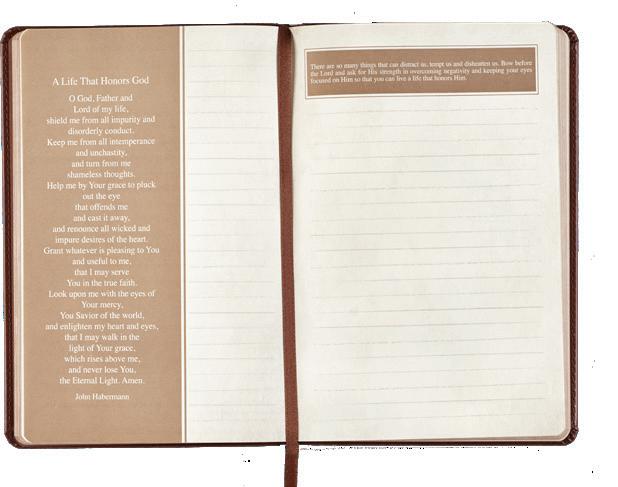 A Life That Honors God
O God, Father and
Lord of my life,
shield me from all impurity and
disorderly conduct.
Keep me from all intemperance
and unchastity,
and turn from me
shameless thoughts.
Help me by Your grace to pluck
out the eye
that offends me
and cast it away,
and renounce all wicked and
impure desires of the heart.
Grant whatever is pleasing to You
and useful to me,
that I may serve
You in the true faith.
Look upon me with the eyes of
Your mercy,
You Savior of the world,
and enlighten my heart and eyes,
that I may walk in the
light of Your grace,
which rises above me,
and never lose You,
the Eternal Light. Amen.
John Habermann
There are so many things that can distract us, tempt us and dishearten us. Bow before
the Lord and ask for His strength in overcoming negativity and keeping your eyes
focused on Him so that you can live a life that honors Him.